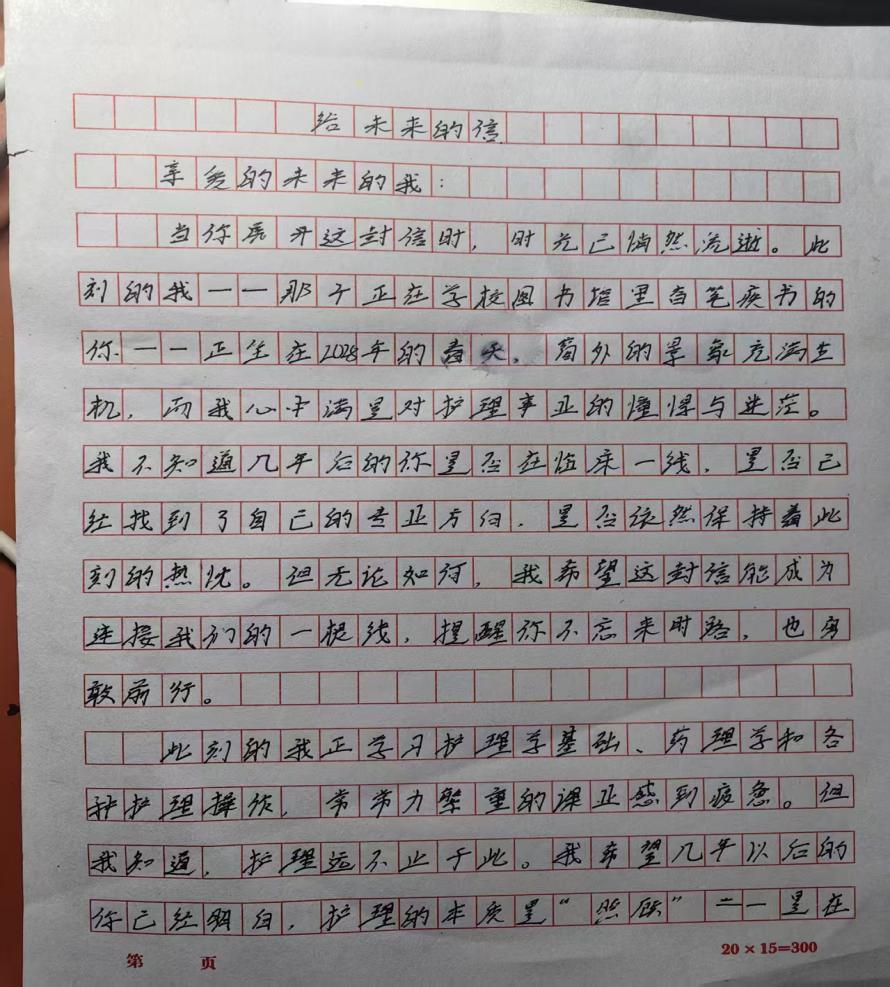 给未来的信
亲爱的未来的我：
当你展开这封信时，时光已悄然流逝。此
刻的我——那个正在学校图书馆里奋笔疾书的
你——正坐在2025年的春天，窗外的景象充满生
机，而我心中满是对护理事业的憧憬与迷茫。
我不知道几年后的你是否在临床一线，是否已
经找到了自己的专业方向，是否依然保持着此
刻的热忱。但无论如何，我希望这封信能成为
连接我们的一根线，提醒你不忘来时路，也勇
敢前行。
此刻的我正学习护理学基础、药理学和各
种护理操作，常常为繁重的课业感到疲惫。但
我知道，护理远不止于此。我希望几年以后的
你已经明白，护理的本质是“照顾”——是在
第 页
20×15=300